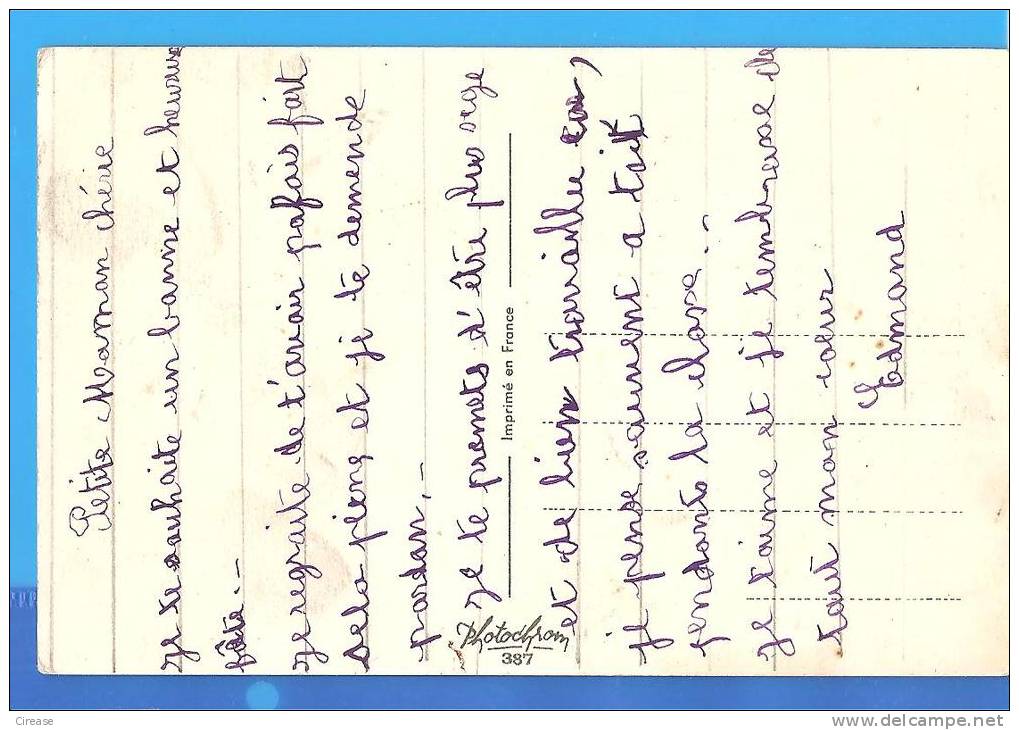 Petite Maman chérie
Je te souhaite un banne et heureuse
fête. -
Je regraite de t'avair pafais fait
sela piens et je te demende
pardan. -
Je te promets d'être plus sege
et de bien travailler
je pense sauvent a tait
pendants la chase. -
Je t'aime et je t'embrasse de
taut man cœur
Edmand
Imprimé en France
Photochrom
387
Cirease
www.delcampe.net